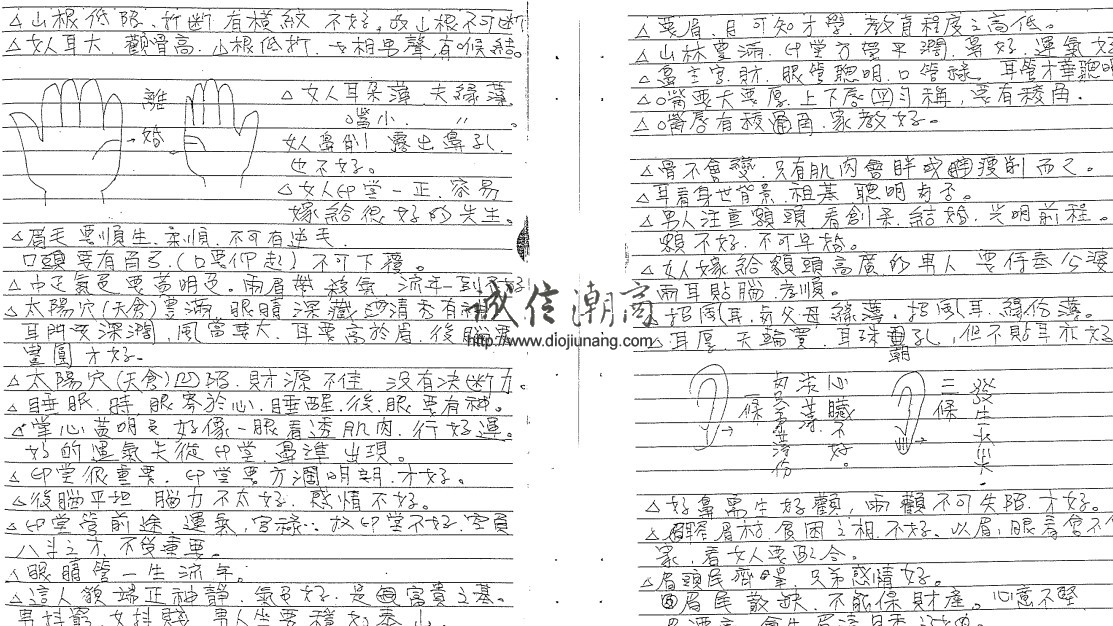 △山根低陷.折斷.有橫紋 不好.故山根不可斷
△女人耳大.顴骨高.山根低折.女相男聲.有喉結。
△女人耳朵薄.夫緣薄
嘴小. 〃 。
女人鼻削.露出鼻孔.
也不好。
△女人印堂一正.容易
嫁給很好的先生。
離
婚
△眉毛要順生.柔順.不可有逆毛.
口頭要有百弓.(口要仰起)不可下覆。
太陽穴(天倉)豐滿.眼睛深藏
耳門要深闊.風當要大.耳要高於眉.後腦要
豐圓才好。
△太陽穴(天倉)凹陷.財源不佳.沒有決斷力。
△睡眠時.眼寄於心.睡醒後.眼要有神。
△掌心黃明是好像一眼看透肌肉.行好運。
好的運氣先從印堂.鼻準出現。
△印堂很重要.印堂要方濶明朗.才好。
△後腦平坦 腦力不太好.感情不好。
△印堂管前途.運氣.官祿..故印堂不好.空負
八斗之才.不受重要。
△眼睛管一生流年。
△這人貌端正神靜.氣色好.是富貴之基。
男抖窮.女抖賤.男人坐要穩如泰山.
△要眉.目可知才學.教育程度之高低。
△山林豐滿.印堂方塑平濶.鼻好.運氣好
△鼻主官.財.眼管聰明.口管祿。耳管才華聰明
△嘴要大要厚.上下唇四勻稱,要有稜角.
△嘴唇有稜角.家教好。
△骨不會變.只有肌肉會胖或瘦削而已。
△耳看身世背景.祖基.聰明與否。
△男人注重額頭.看創業.結婚.光明前程。
額不好.不可早婚。
△女人嫁給額頭高廣的男人 要侍奉公婆
兩耳貼腦.孝順。
△招風耳.與父母緣薄.招風耳.緣份薄。
△耳厚.天輪實.耳珠朝孔,但不貼耳亦好
一條
心臟不好。
三條
發生火災
△好鼻需生好顴,兩顴不可失陷.才好。
家,看女人要配合。
△眉頭尾齊.兄弟感情好。
眉尾散缺.不能保財產。心意不堅
誠信潮高
http://www.diojiunang.com/